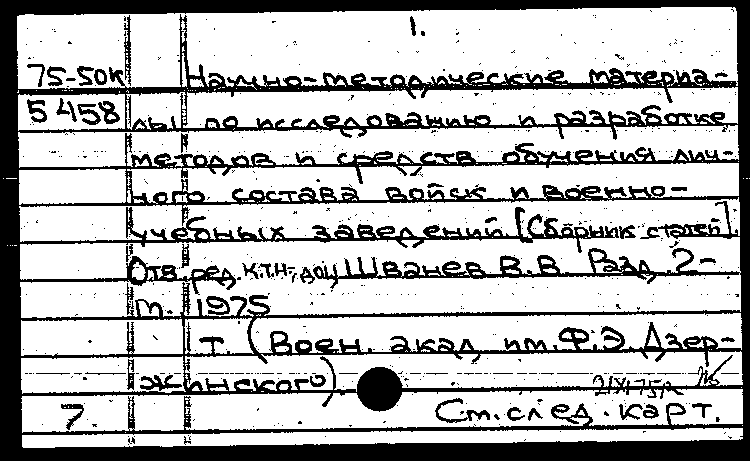 1.
75-50к Научно-методические материа-
5458 лы по исследованию и разработке
методов и средств обучения лич-
ного состава войск и военно-
учебных заведений [Сборник статей].
Отв. ред. к.т.н., доц Шванев В.В. Разд. 2-
М., 1975
т. (Воен. акад. им. Ф.Э. Дзер-
жинского).
7 См. след. карт.